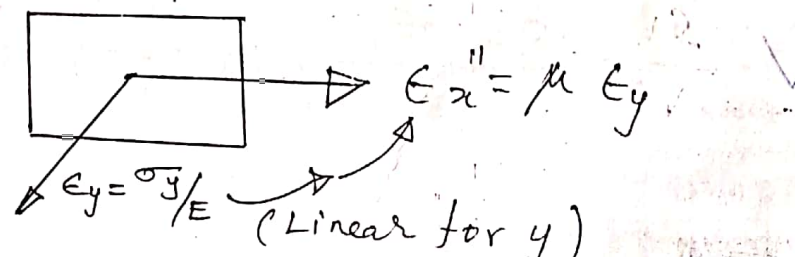 ϵx'' = μ ϵy
ϵy = σy/E
(Linear for y)